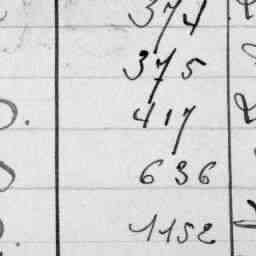 374
375
417
636
1152